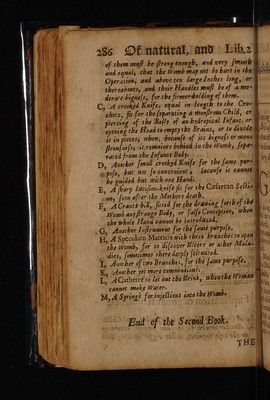 286 Of natural, and Lib.2
of them must be strong enough, and very smooth
and equal, that the Womb may not be hurt in the
Operation, and above ten large Inches long, or
thereabouts, and their Handles must be of a mo-
derate bigness, for the firmer holding of them.
C, A crooked Knife, equal in length to the Cro-
chets, fit for the separating a monstrous Child, or
piercing of the Belly of an hydropical Infant, or
opening the Head to empty the Brains, or to divide
it in pieces, when, because of its bigness or mon-
strousness, it remains behind in the Womb, sepa-
rated from the Infants Body.
D, Another small crooked Knife for the same pur-
pose, but not so convenient, because it cannot
be guided but with one Hand.
E, A sharp Incision-knife fit for the Cæsarean Secti-
on, soon after the Mothers death.
F, A Cranes bill, fitted for the drawing forth of the
Womb any strange Body, or false Conception, when
the whole Hand cannot be introduced.
G, Another Instrument for the same purpose.
H, A Speculum Matricis with three branches to open
the Womb, for to discover Ulcers or other Mala-
dies, sometimes there deeply scituated.
I, Another of two Branches, for the same purpose.
K, Another yet more commodious.
L, A Catheter to let out the Urine, when the Woman
cannot make Water.
M, A Syringe for injections into the Womb.
End of the Second Book.
THE